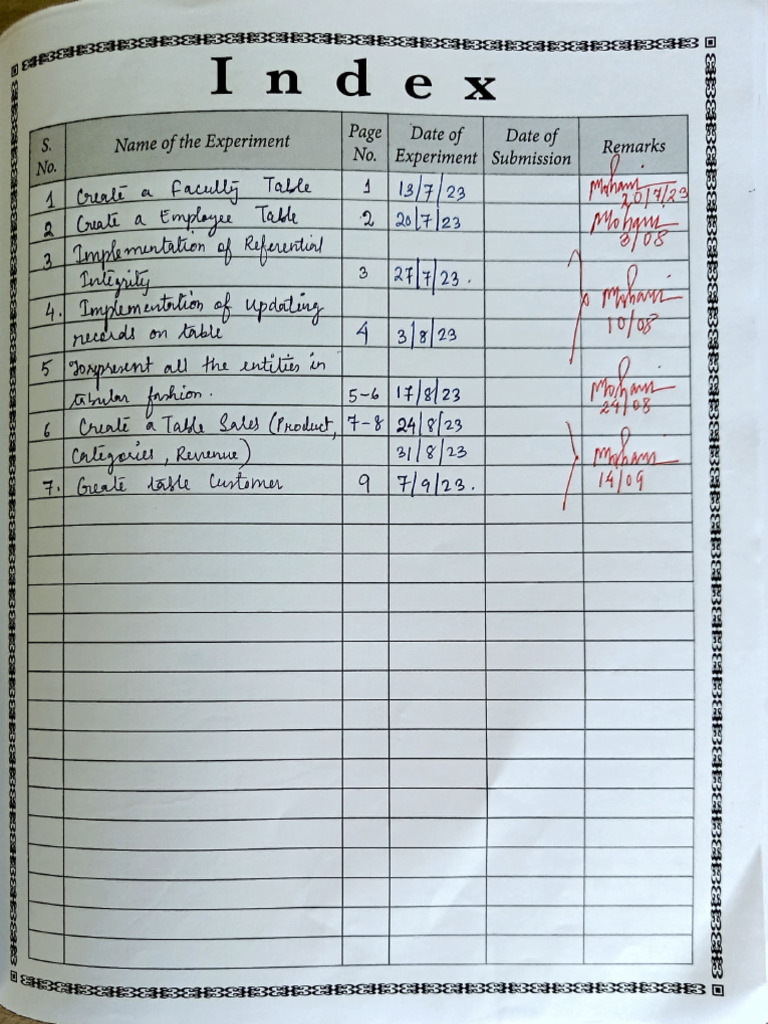 Index
S. No. Name of the Experiment Page No. Date of Experiment Date of Submission Remarks
1 Create a Faculty Table 1 13/7/23 20/7/23
2 Create a Employee Table 2 20/7/23 3/08
3 Implementation of Referential
Integrity 3 27/7/23.
4. Implementation of updating 10/08
records on table 4 3/8/23
5 all the entities in
tabular fashion. 5-6 17/8/23 24/08
6 Create a Table Sales (Product, 7-8 24/8/23
Categories, Revenue) 31/8/23
7. Create table Customer 9 7/9/23. 14/09